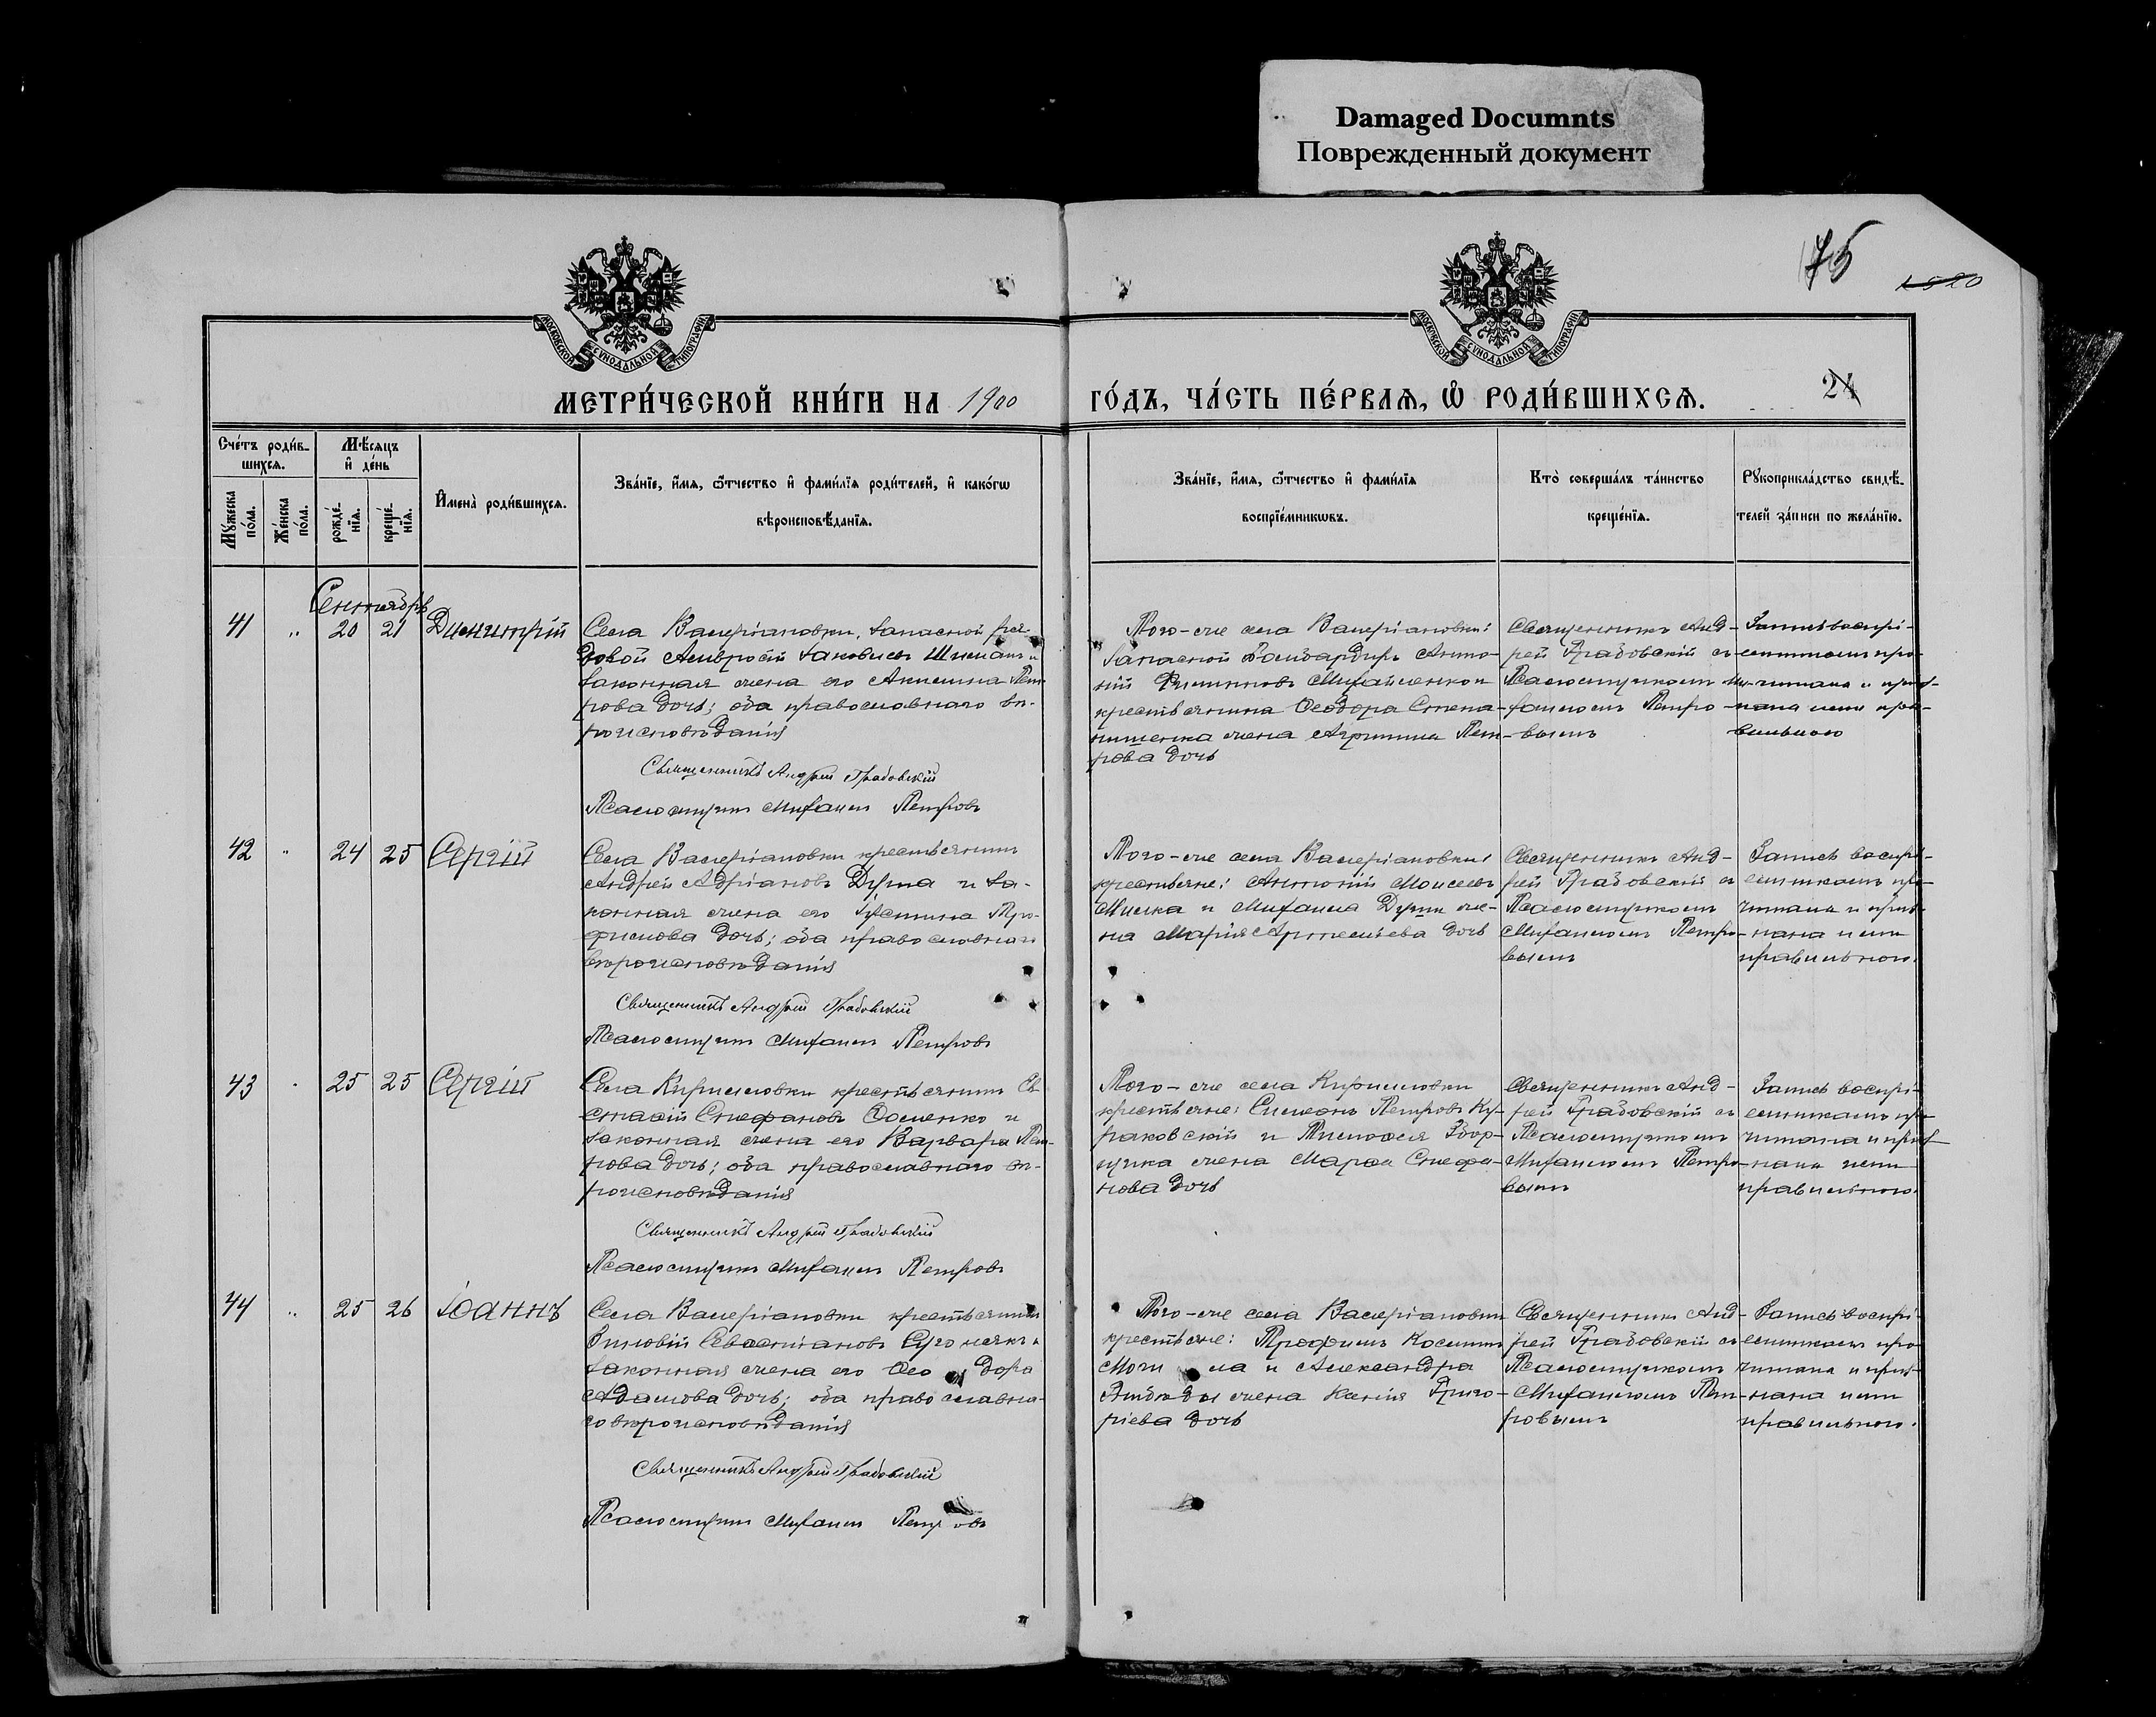 Damaged Documnts
Поврежденный документ
75
1520
МОСКОВСКОЙ СѴНОДАЛЬНОЙ ТИПОГРАФІИ
МОСКОВСКОЙ СѴНОДАЛЬНОЙ ТИПОГРАФІИ
МЕТРИ́ЧЕСКОЙ КНИ́ГИ НА 1900
ГО́ДЪ, ЧА́СТЬ ПЕ́РВАѦ, Ѡ҆ РОДИ́ВШИХСѦ.
24
Сче́тъ роди́в-
шихсѧ.
Мꙋ́жеска
по́ла.
Же́нска
по́ла.
Мѣ́сѧцъ
и҆ де́нь
рожде́-
нїѧ.
креще́-
нїѧ.
И҆мена̀ роди́вшихсѧ.
Зва́нїе, и҆́мѧ, ѻ҆́тчество и҆ фами́лїѧ роди́телей, и҆ како́гѡ
вѣроисповѣ́данїѧ.
Зва́нїе, и҆́мѧ, ѻ҆́тчество и҆ фами́лїѧ
воспрїе́мникѡвъ.
Кто̀ соверша́лъ та́инство
креще́нїѧ.
Рꙋкоприкла́дство свидѣ́-
телей за́писи по жела́нїю.
Сентябрь
41 " 20 21 Димитрій
Села Валеріановки, запасной ря-
довой Амвросій Іаковлевъ Шиманъ и
законная жена его Акилина Пет-
рова дочь; оба православного вѣ-
роисповѣданія
Священникъ Андрей Грабовскій
Псаломщикъ Михаилъ Петровъ
Того-же села Валеріановки:
запасной Бомбардиръ Анто-
ній Филиповъ Михайленко и
крестьянина Ѳеодора Степа-
нишенка жена Агрипина Пет-
рова дочь
Священникъ Анд-
рей Грабовскій съ
Псаломщикомъ Ми-
хаиломъ Петро-
вымъ
Запись воспрі-
емникамъ про-
читана и приз-
нана ими пра-
вильною
42 " 24 25 Сергій
Села Валеріановки крестьянинъ
Андрей Адріановъ Дупа и за-
конная жена его Іустина Тро-
фимова дочь; оба православнаго
вѣроисповѣданія
Священникъ Андрей Грабовскій
Псаломщикъ Михаилъ Петровъ
Того-же села Валеріановки
крестьяне: Антоній Моисеевъ
и Михаила жена
Марія Артемьева дочь
Священникъ Анд-
рей Грабовскій съ
Псаломщикомъ
Михаиломъ Петро-
вымъ
Запись воспрі-
емникамъ про-
читана и приз-
нана ими
правильною.
43 " 25 25 Сергій
Села Кирилловки крестьянинъ Ев-
стафій Стефановъ Фоменко и
законная жена его Варвара Пет-
рова дочь; оба православнаго вѣ-
роисповѣданія
Священникъ Андрей Грабовскій
Псаломщикъ Михаилъ Петровъ
Того-же села Кирилловки
крестьяне: Симеонъ Петровъ Ку-
раковскій и Тимофея Збор-
щика жена Марфа Стефа-
нова дочь
Священникъ Анд-
рей Грабовскій съ
Псаломщикомъ
Михаиломъ Петро-
вымъ
Запись воспрі-
емникамъ про-
читана и приз-
нана ими
правильною.
44 " 25 26 Іоаннъ
Села Валеріановки крестьянинъ
Зиновій Севастіановъ и
законная жена его Ѳеодора
Адамова дочь; оба православна-
го вѣроисповѣданія
Священникъ Андрей Грабовскій
Псаломщикъ Михаилъ Петровъ
Того-же села Валеріановки
крестьяне: Трофимъ Косминъ
и Александра
жена Ксенія Григо-
ріева дочь
Священникъ Анд-
рей Грабовскій съ
Псаломщикомъ
Михаиломъ Пет-
ровымъ
Запись воспрі-
емникамъ про-
читана и приз-
нана ими
правильною.